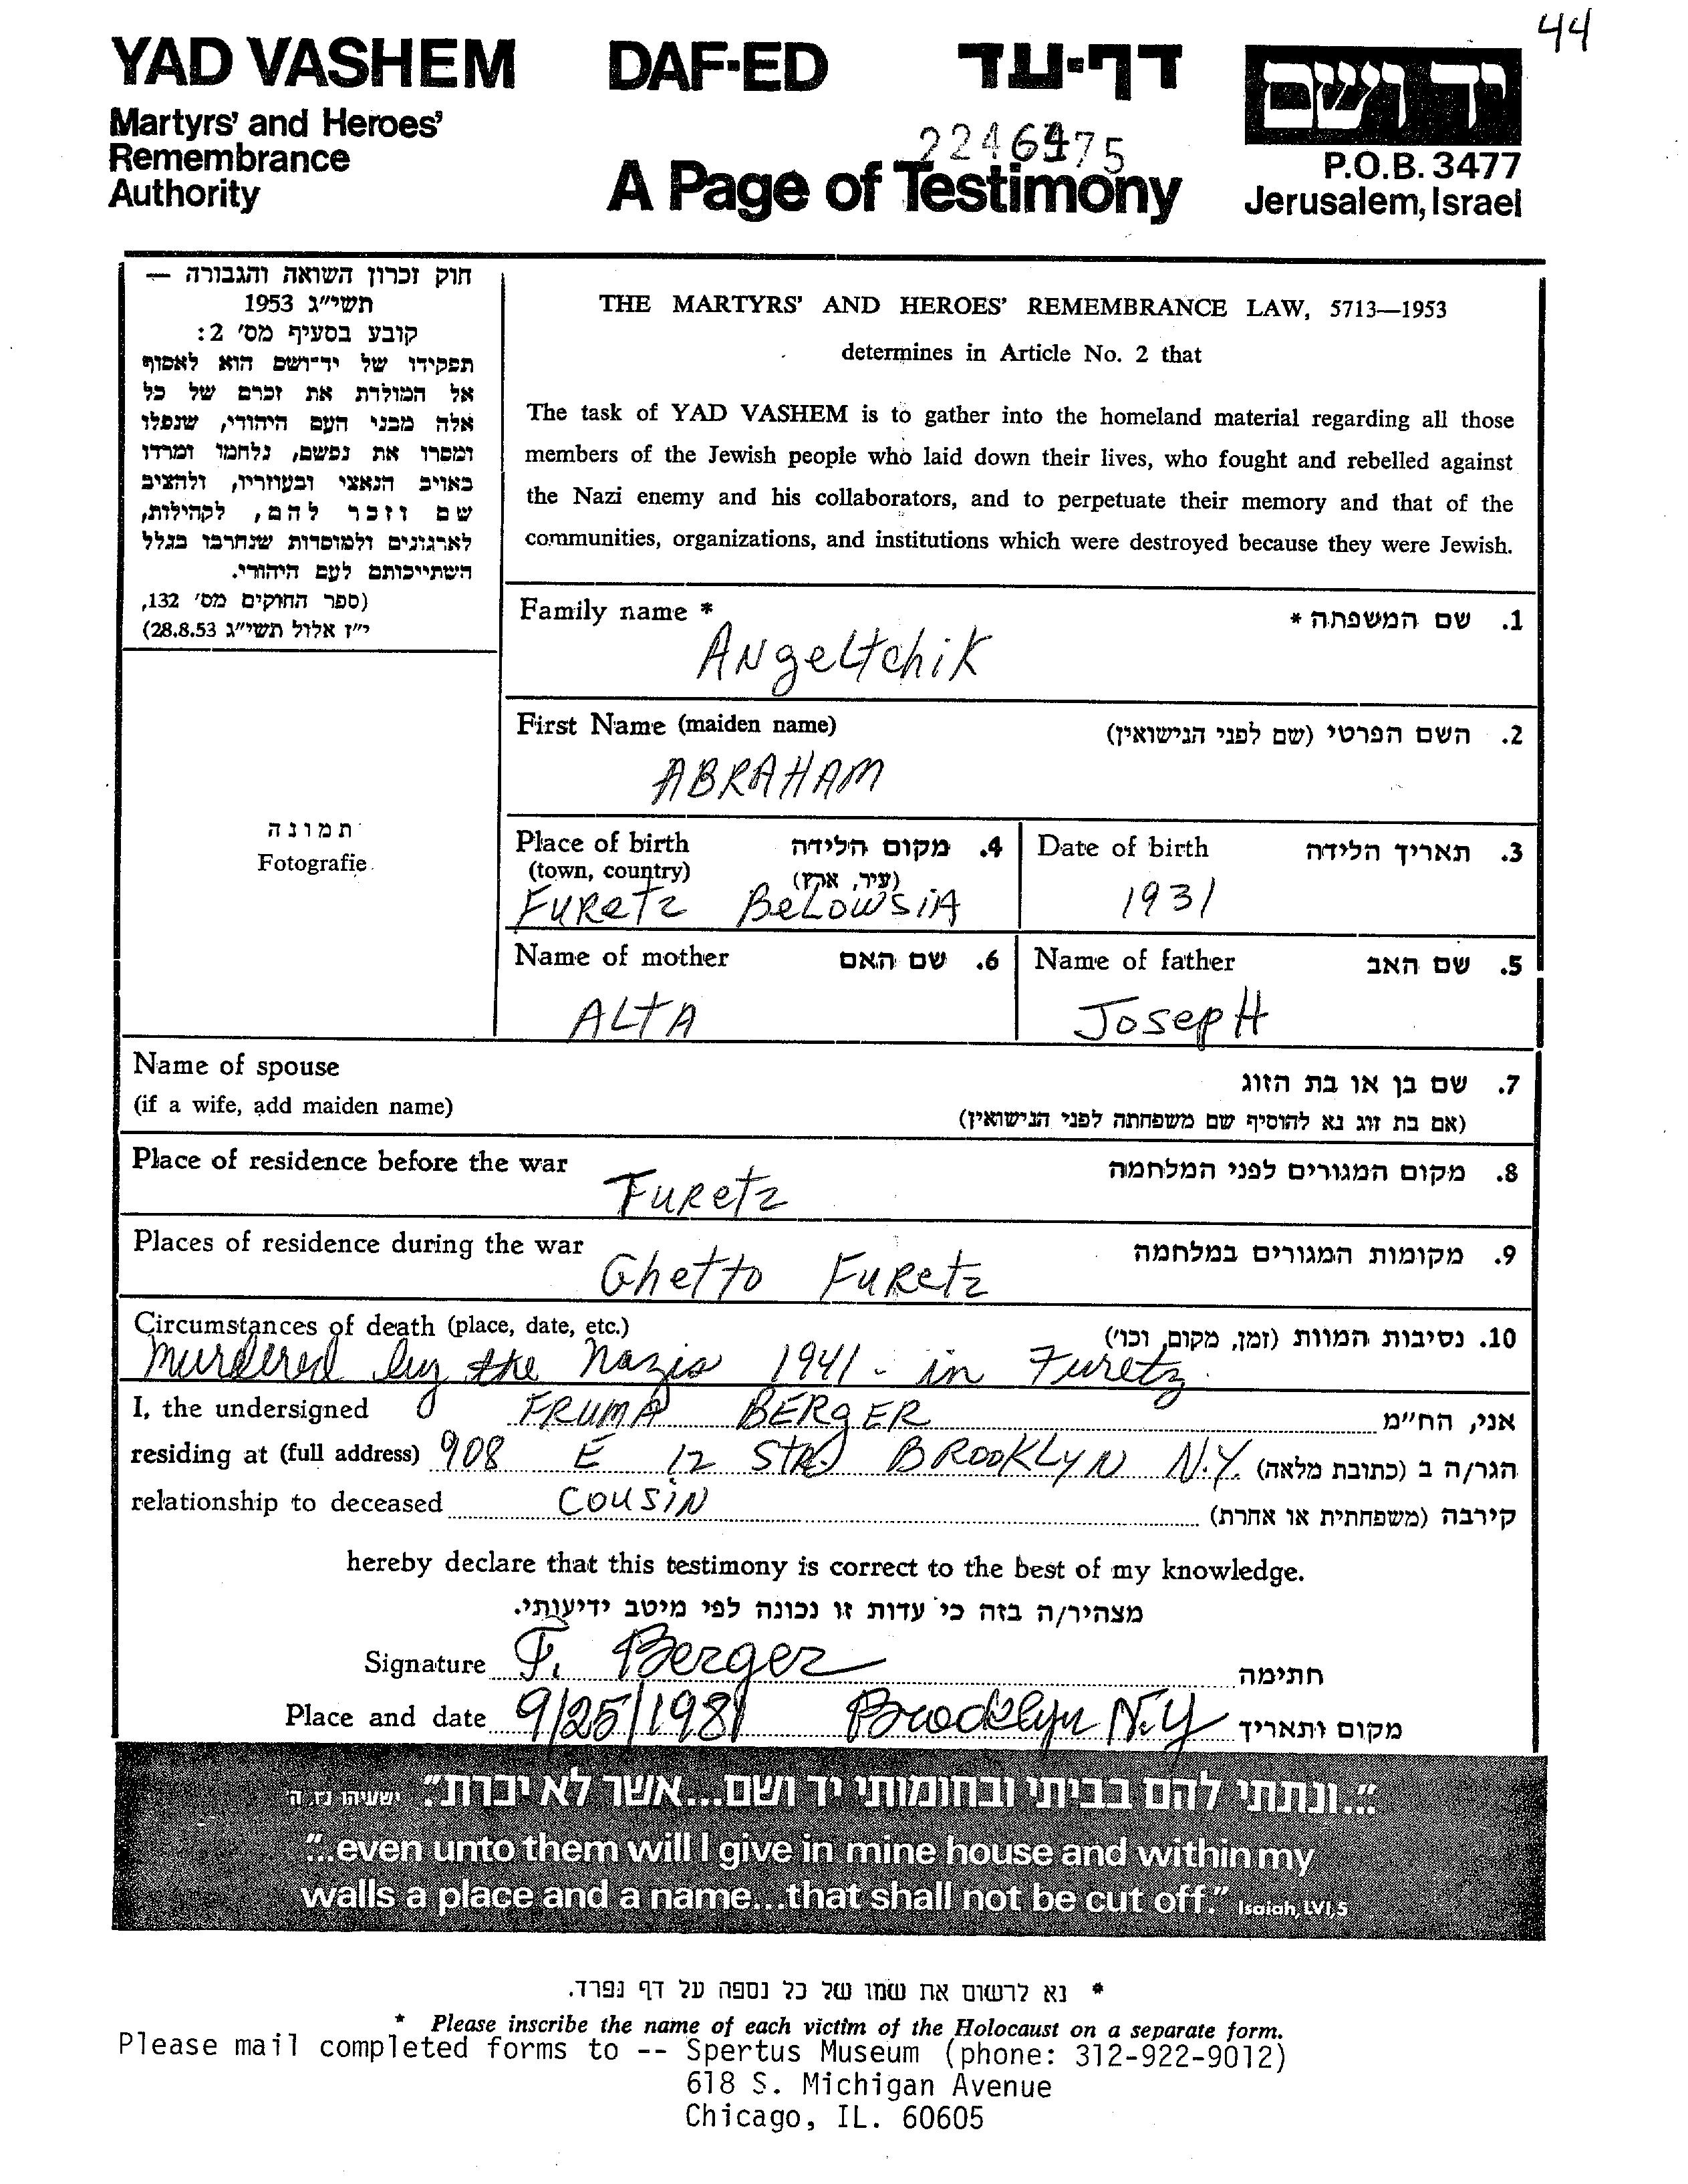 44
YAD VASHEM DAF-ED דף-עד יד ושם
Martyrs' and Heroes'
Remembrance
Authority
A Page of Testimony
P.O.B. 3477
Jerusalem, Israel
חוק זכרון השואה והגבורה —
תשי״ג 1953
קובע בסעיף מס׳ 2:
תפקידו של יד־ושם הוא לאסוף
אל המולדת את זכרם של כל
אלה מבני העם היהודי, שנפלו
ומסרו את נפשם, נלחמו ומרדו
באויב הנאצי ובעוזריו, ולהציב
שם וזכר להם, לקהילות,
לארגונים ולמוסדות שנחרבו בגלל
השתייכותם לעם היהודי.
(ספר החוקים מס׳ 132,
י״ז אלול תשי״ג 28.8.53)
THE MARTYRS' AND HEROES' REMEMBRANCE LAW, 5713—1953
determines in Article No. 2 that
The task of YAD VASHEM is to gather into the homeland material regarding all those
members of the Jewish people who laid down their lives, who fought and rebelled against
the Nazi enemy and his collaborators, and to perpetuate their memory and that of the
communities, organizations, and institutions which were destroyed because they were Jewish.
Family name * שם המשפחה * .1
Angeltchik
First Name (maiden name) השם הפרטי (שם לפני הנישואין) .2
ABRAHAM
תמונה
Fotografie
Place of birth מקום הלידה .4
(town, country) (עיר, ארץ)
Furetz Belowsia
Date of birth תאריך הלידה .3
1931
Name of mother שם האם .6
ALTA
Name of father שם האב .5
Joseph
Name of spouse שם בן או בת הזוג .7
(if a wife, add maiden name) (אם בת זוג נא להוסיף שם משפחתה לפני הנישואין)
Place of residence before the war מקום המגורים לפני המלחמה .8
Furetz
Places of residence during the war מקומות המגורים במלחמה .9
Ghetto Furetz
Circumstances of death (place, date, etc.) נסיבות המוות (זמן, מקום, וכו׳) .10
Murdered by the Nazis 1941 - in Furetz.
I, the undersigned FRUMA BERGER אני, הח״מ
residing at (full address) 908 E 12 STR. BROOKLYN N.Y. הגר/ה ב (כתובת מלאה)
relationship to deceased COUSIN קירבה (משפחתית או אחרת)
hereby declare that this testimony is correct to the best of my knowledge.
מצהיר/ה בזה כי עדות זו נכונה לפי מיטב ידיעותי.
Signature F. Berger חתימה
Place and date 9/25/1981 Brooklyn N.Y מקום ותאריך
"...ונתתי להם בביתי ובחומותי יד ושם...אשר לא יכרת". ישעיהו נו, ה׳
"...even unto them will I give in mine house and within my
walls a place and a name...that shall not be cut off." Isaiah, LVI,5
* נא לרשום את שמו של כל נספה על דף נפרד.
* Please inscribe the name of each victim of the Holocaust on a separate form.
Please mail completed forms to -- Spertus Museum (phone: 312-922-9012)
618 S. Michigan Avenue
Chicago, IL. 60605